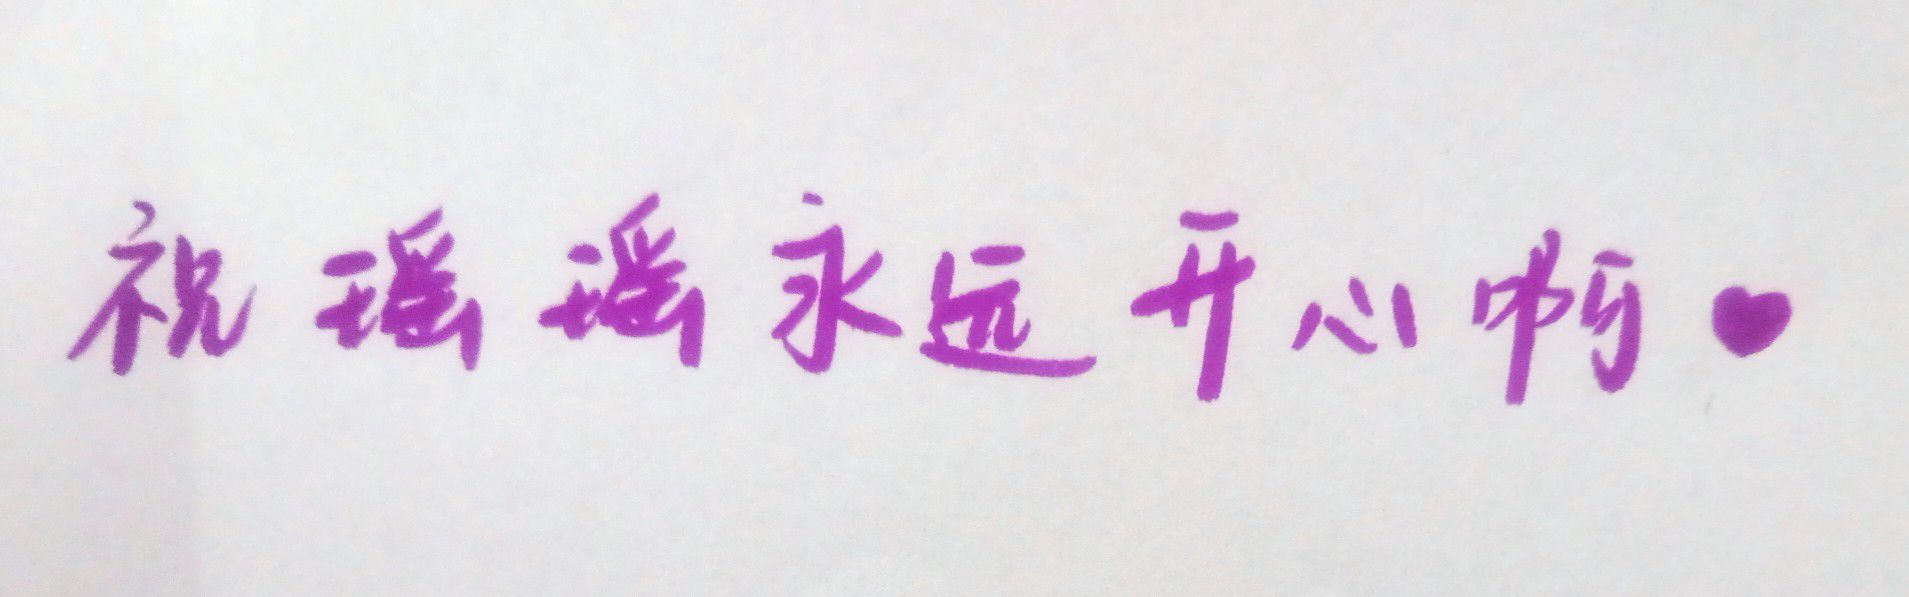 祝瑶瑶永远开心啊♥